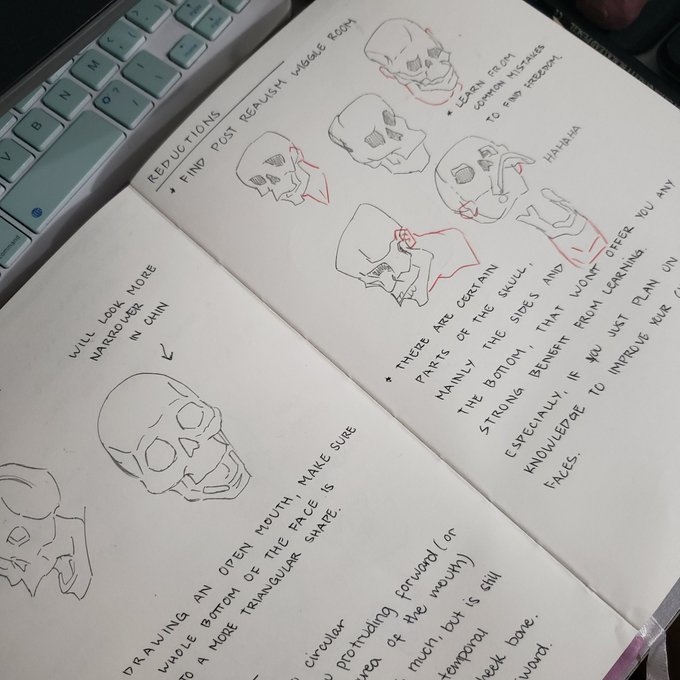 REDUCTIONS
* FIND POST REALISM WIGGLE ROOM
* LEARN FROM
COMMON MISTAKES
TO FIND FREEDOM.
HAHAHA
* THERE ARE CERTAIN
PARTS OF THE SKULL,
MAINLY THE SIDES AND
THE BOTTOM, THAT WON'T OFFER YOU ANY
STRONG BENEFIT FROM LEARNING.
ESPECIALLY, IF YOU JUST PLAN ON
KNOWLEDGE TO IMPROVE YOUR
FACES.
WILL LOOK MORE
NARROWER
IN CHIN
DRAWING AN OPEN MOUTH, MAKE SURE
WHOLE BOTTOM OF THE FACE IS
TO A MORE TRIANGULAR SHAPE.
circular
protruding forward (or
area of the mouth)
much, but is still
temporal
cheek bone.
N
M
B
V
command